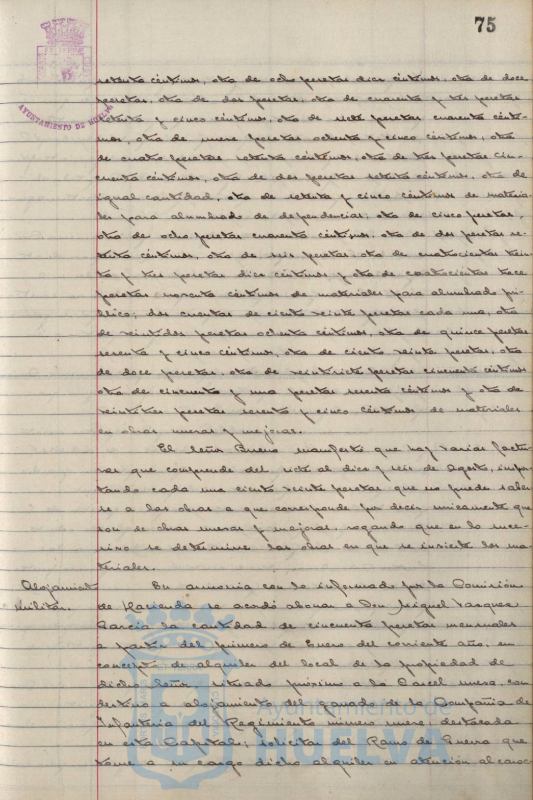 75
AYUNTAMIENTO DE HUELVA
setenta céntimos, otra de ocho pesetas diez céntimos, otra de doce
pesetas, otra de dos pesetas, otra de cuarenta y tres pesetas
setenta y cinco céntimos, otra de siete pesetas cuarenta cénti-
mos, otra de nueve pesetas ochenta y cinco céntimos, otra
de cuatro pesetas setenta céntimos, otra de tres pesetas cin-
cuenta céntimos, otra de dos pesetas setenta céntimos, otra de
igual cantidad, otra de setenta y cinco céntimos de materia-
les para alumbrado de dependencias; otra de cinco pesetas,
otra de ocho pesetas cuarenta céntimos, otra de dos pesetas se-
tenta céntimos, otra de seis pesetas, otra de cuatrocientas trein-
ta y tres pesetas diez céntimos y otra de cuatrocientas trece
pesetas noventa céntimos de materiales para alumbrado pú-
blico; dos cuentas de ciento veinte pesetas cada una, otra
de veintidos pesetas ochenta céntimos, otra de quince pesetas
sesenta y cinco céntimos, otra de ciento veinte pesetas, otra
de doce pesetas, otra de veintisiete pesetas cincuenta céntimos
otra de cincuenta y una pesetas sesenta céntimos y otra de
veintitres pesetas sesenta y cinco céntimos de materiales
en obras nuevas y mejoras.
El Señor Bueno manifestó que hay varias factu-
ras que comprende del siete al diez y seis de Agosto, impor-
tando cada una ciento veinte pesetas que no puede saber-
se a las obras a que corresponde por decir unicamente que
son de obras nuevas y mejoras, rogando que en lo suce-
sivo se determine las obras en que se invierte los ma-
teriales.
Alojamiento
Militar.
En armonia con lo informado por la Comisión
de Hacienda se acordó abonar a Don Miguel Vazquez
Garcia la cantidad de cincuenta pesetas mensuales
a partir del primero de Enero del corriente año, en
concepto de alquiler del local de la propiedad de
dicho Señor situado próximo a la Carcel nueva, con
destino a alojamiento del ganado de la Compañia de
Infanteria del Regimiento número nueve, destacada
en esta Capital; solicitar del Ramo de Guerra que
tome a su cargo dicho alquiler en atención al carac-
Ayuntamiento de
HUELVA